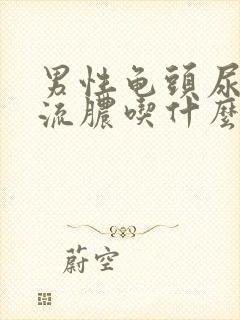 男性龟頭尿
流膿喫什麼
蔚空